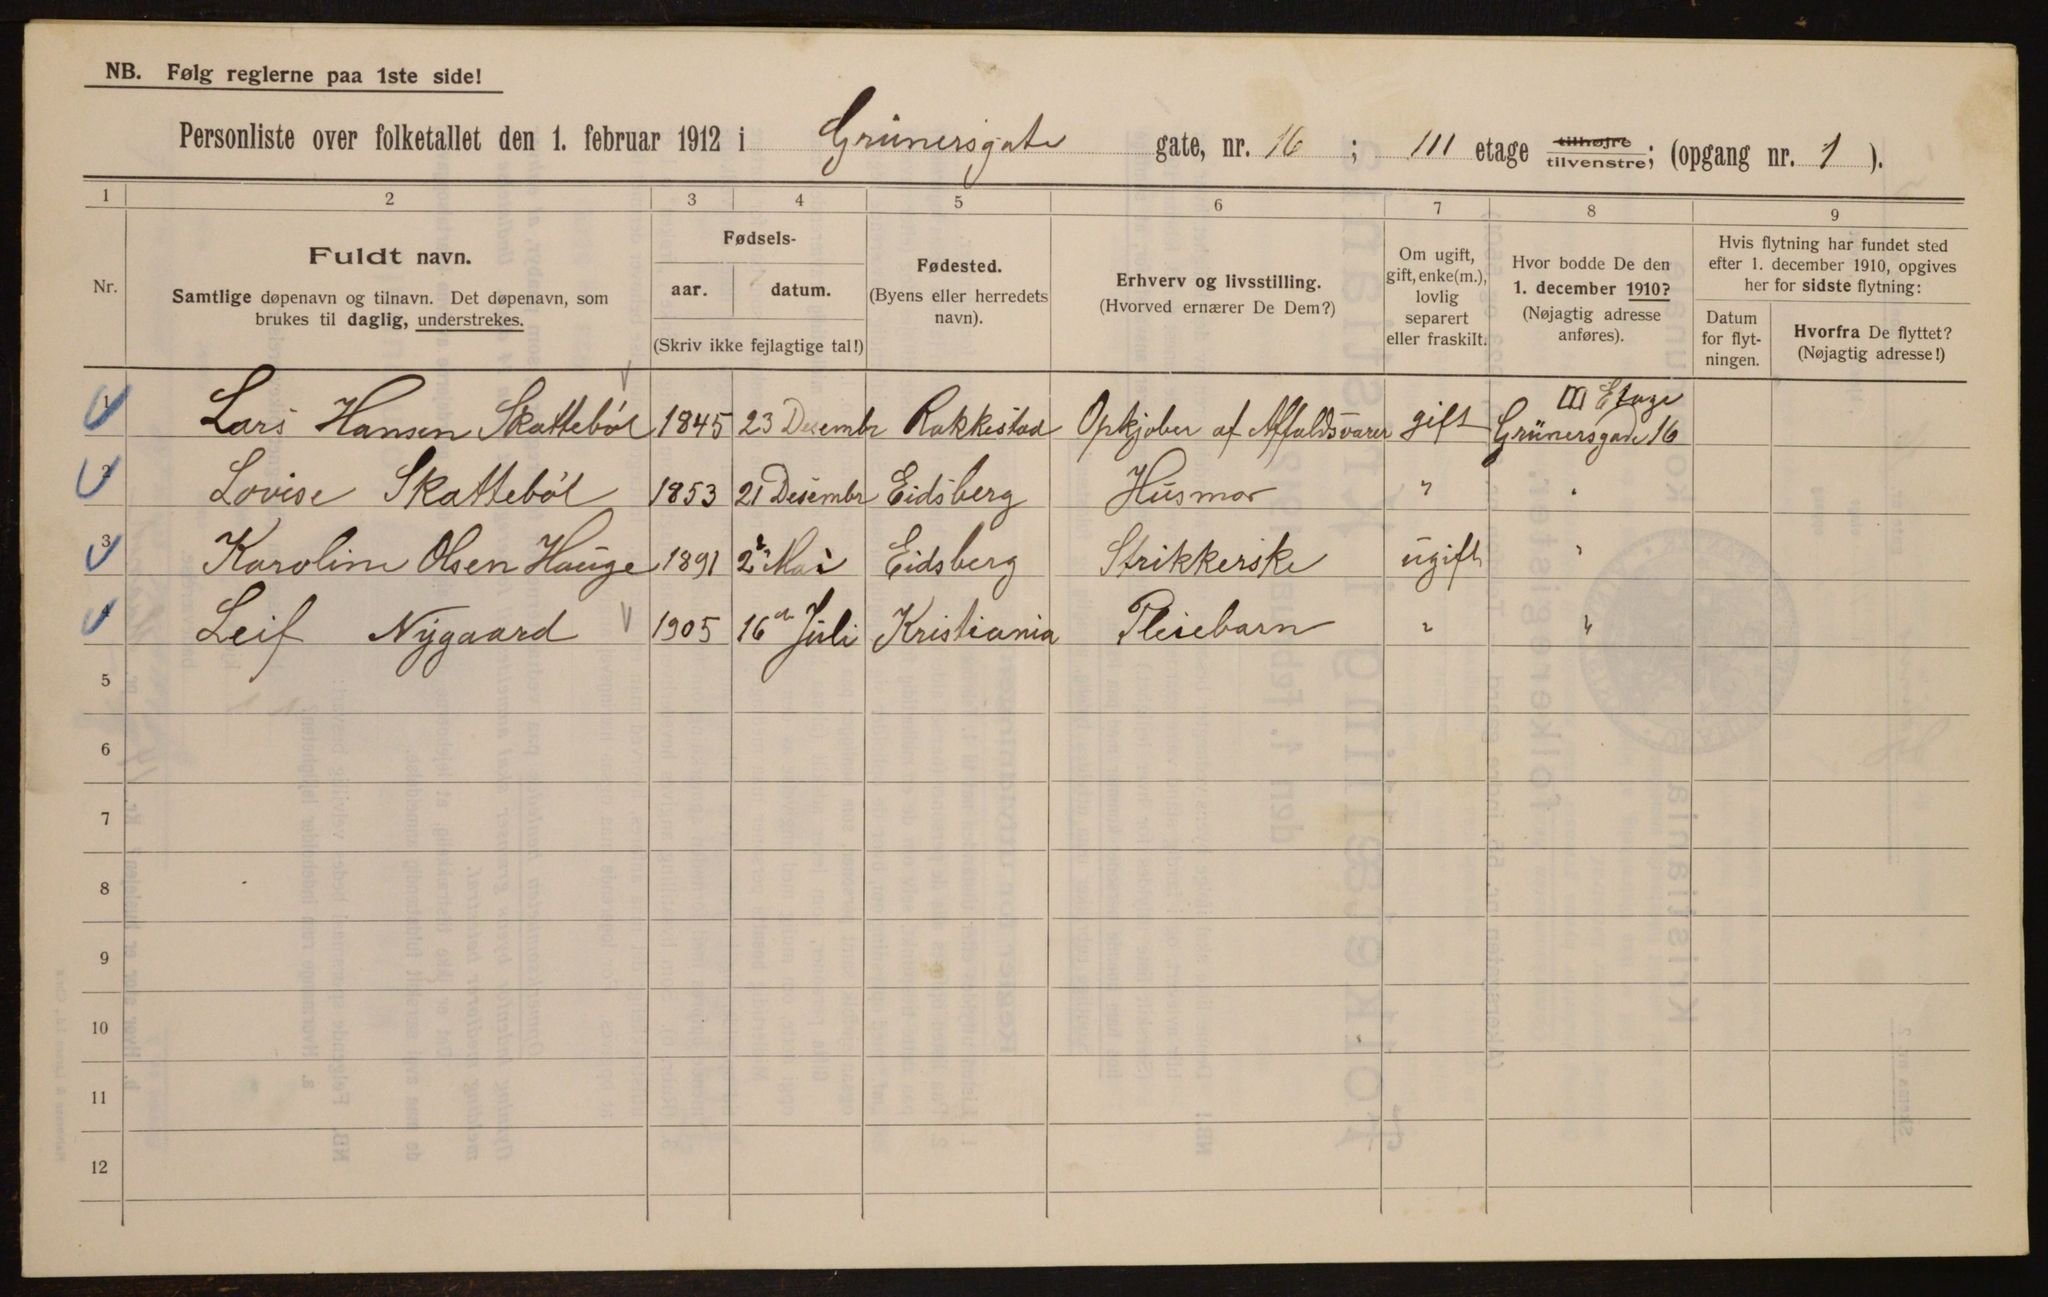 NB. Følg reglerne paa 1ste side!
Personliste over folketallet den 1. februar 1912 i Grünersgate gate, nr. 16 ; III etage tilhøjre tilvenstre; (opgang nr. 1 ).
1 2 3 4 5 6 7 8 9
Nr.
Fuldt navn.
Samtlige døpenavn og tilnavn. Det døpenavn, som
brukes til daglig, understrekes.
Fødsels-
aar. datum.
(Skriv ikke fejlagtige tal!)
Fødested.
(Byens eller herredets
navn).
Erhverv og livsstilling.
(Hvorved ernærer De Dem?)
Om ugift,
gift, enke(m.),
lovlig
separert
eller fraskilt.
Hvor bodde De den
1. december 1910?
(Nøjagtig adresse
anføres).
Hvis flytning har fundet sted
efter 1. december 1910, opgives
her for sidste flytning:
Datum
for flyt-
ningen.
Hvorfra De flyttet?
(Nøjagtig adresse!)
III Etage
1 Lars Hansen Skattebøl 1845 23 Desembr Rakkestad Opkjøber af Affaldsvarer gift Grünersgade 16
2 Lovise Skattebøl 1853 21 Desembr Eidsberg Husmor " "
3 Karoline Olsen Hauge 1891 2 Mai Eidsberg Strikkerske ugift "
4 Leif Nygaard 1905 16 Juli Kristiania Pleiebarn " "
5
6
7
8
9
10
11
12